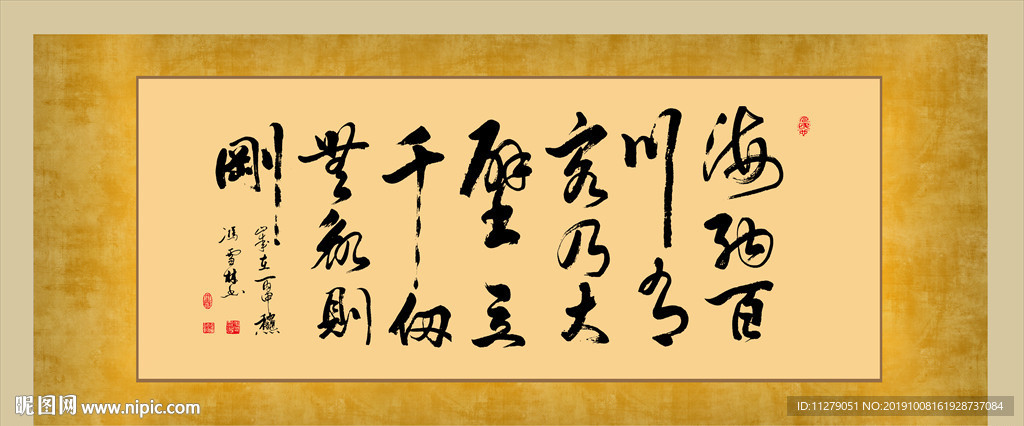 海納百
川有
容乃大
壁立
千仞
無欲則
剛
歲在丙申龝
馮雪林书
昵图网 www.nipic.com
ID:11279051 NO:20191008161928737084